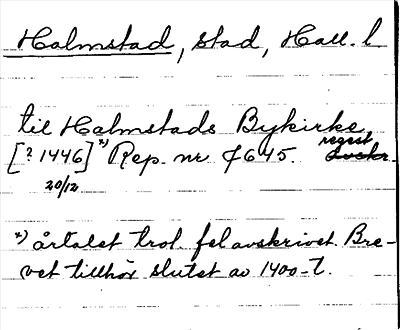 Halmstad, stad, Hall. l
til Halmstads Bykirke
[? 1446]*) Rep. nr. 7645. regest
20/12
*) årtalet trol. fel avskrivet. Bre-
vet tillhör slutet av 1400-t.